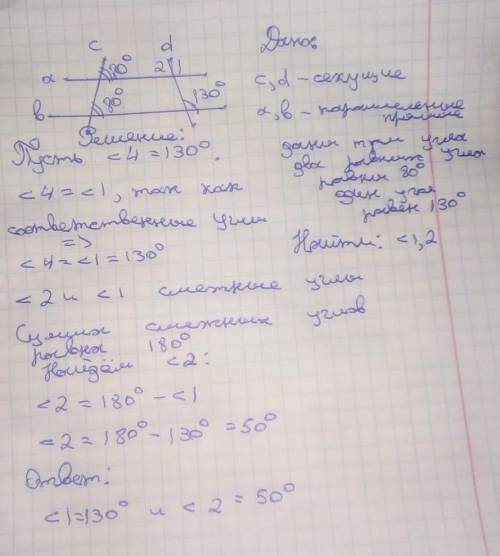 c d
a 80° 2 1
b 80° 130°
Дано:
c, d – секущие
a, b – параллельные
прямые
даны три угла
два равных угла
равны 80°
один угол
равен 130°
Найти: <1,2
Решение:
Пусть <4 = 130°.
<4 = <1, так как
соответственные углы
=>
<4 = <1 = 130°
<2 и <1 смежные углы
Сумма смежных углов
равна 180°
Найдём <2:
<2 = 180° - <1
<2 = 180° - 130° = 50°
Ответ:
<1=130° и <2 = 50°